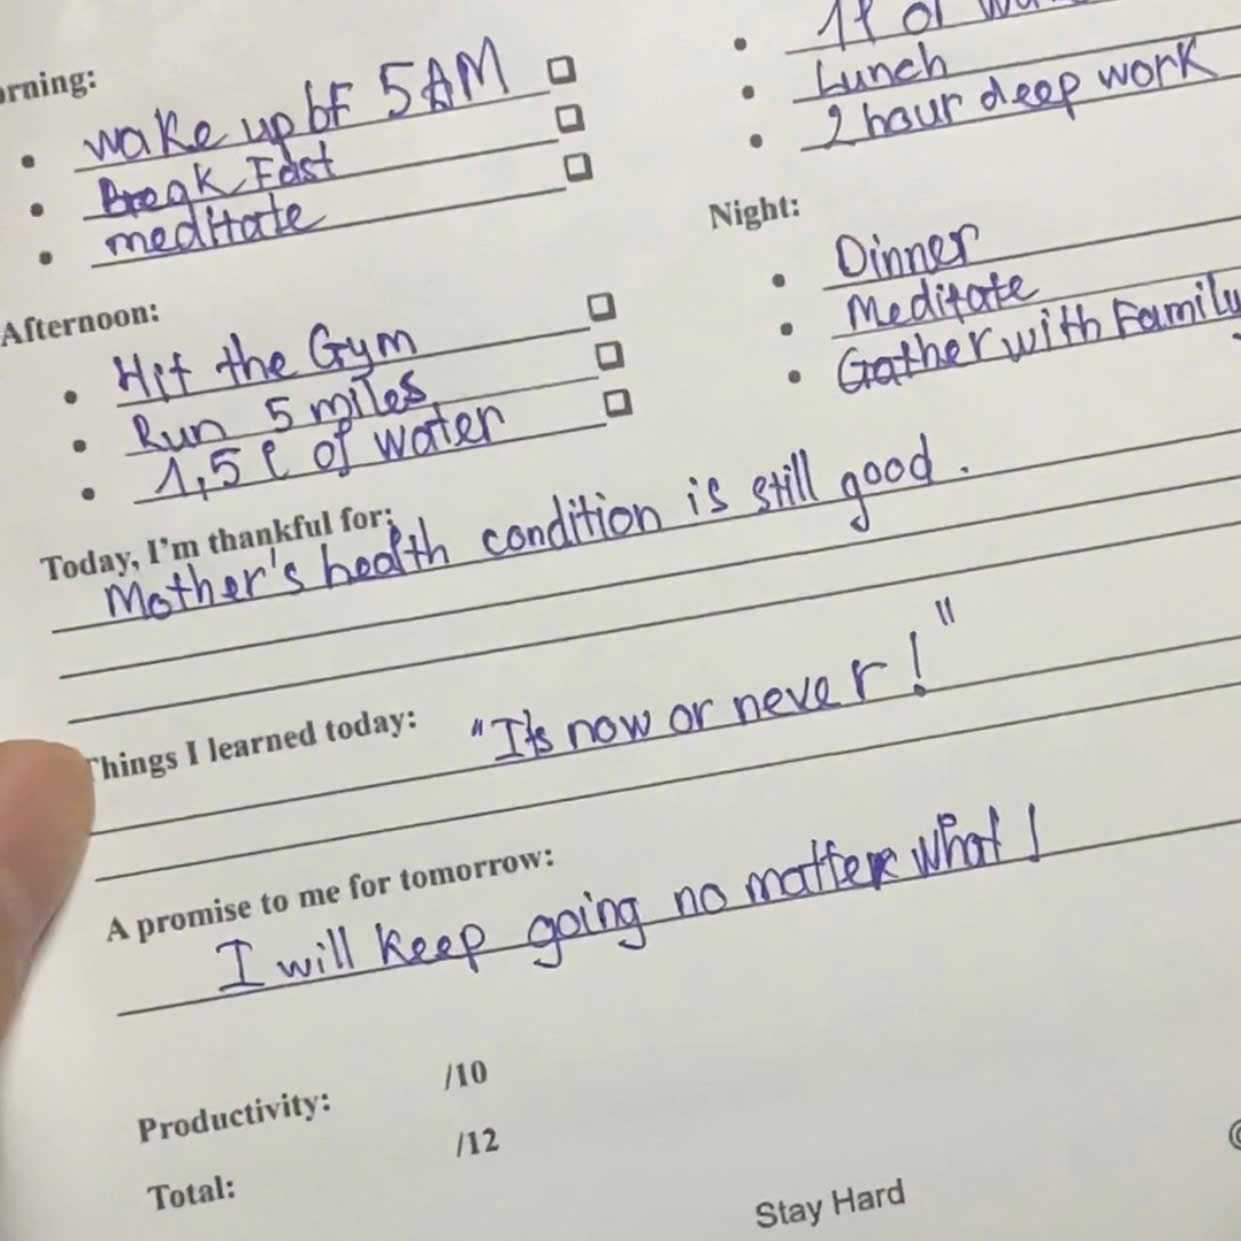 wake up bf 5AM
Break Fast
meditate
Afternoon:
Hit the Gym
Run 5 miles
1,5 l of water
Lunch
2 hour deep work
Night:
Dinner
Meditate
Gather with Family
Today, I'm thankful for:
Mother's health condition is still good.
Things I learned today: "It's now or never!"
A promise to me for tomorrow:
I will keep going no matter what!
Productivity: /10
Total: /12
Stay Hard